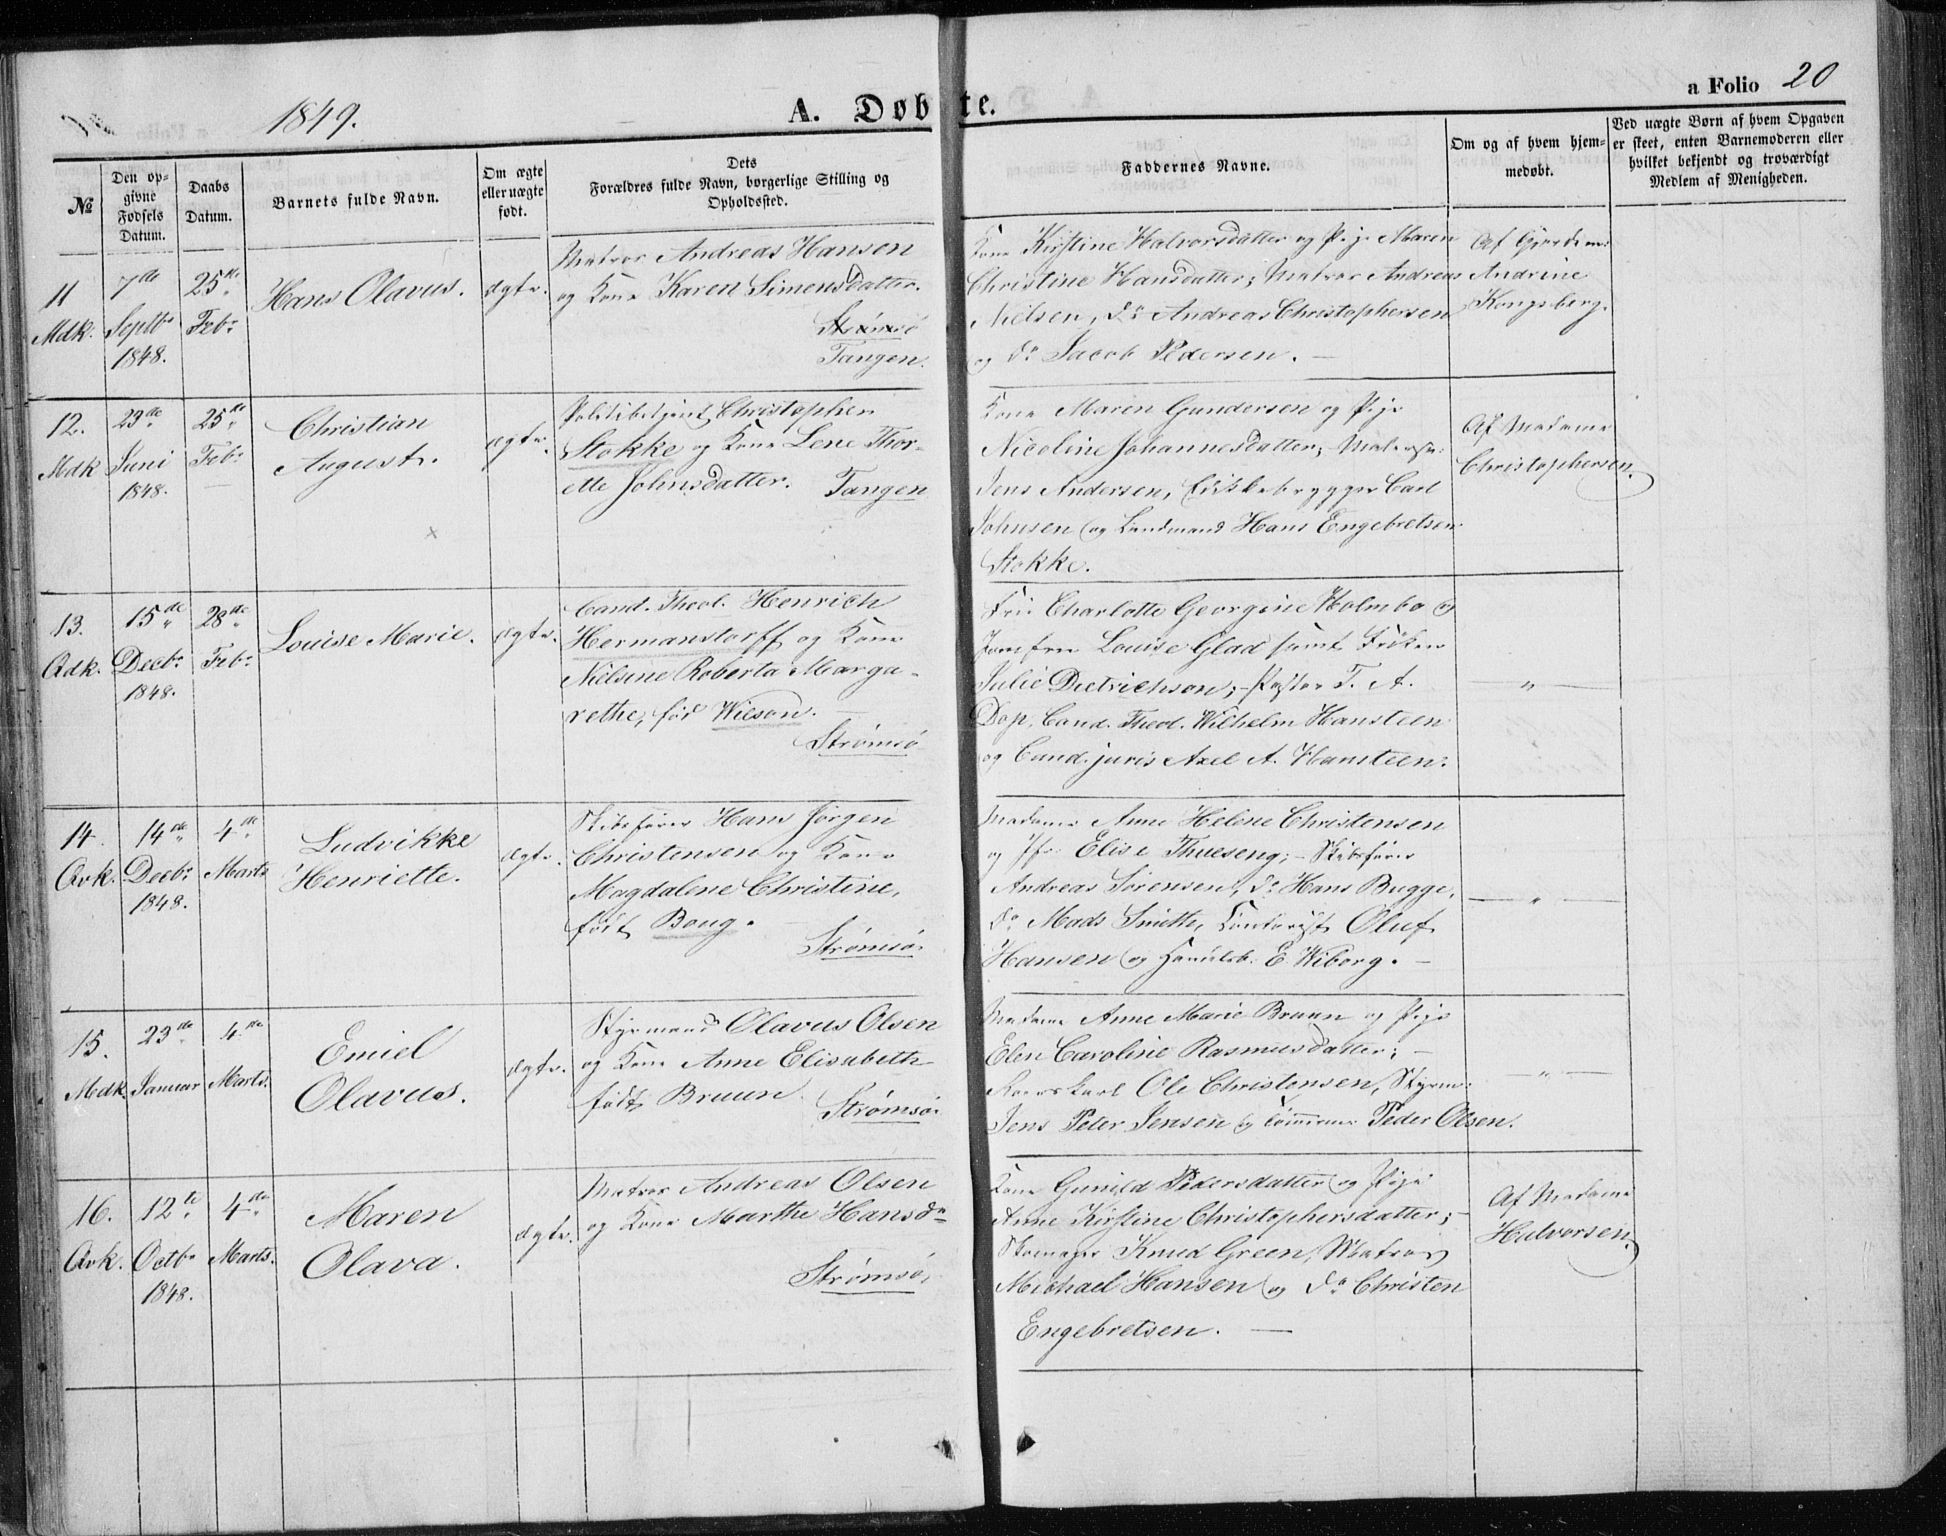 1849.
A. Døbte.
a Folio 20
№
Den opgivne Fødsels Datum.
Daabs Datum.
Barnets fulde Navn.
Om ægte eller uægte født.
Dets Forældres fulde Navn, borgerlige Stilling og Opholdssted.
Faddernes Navne.
Om og af hvem hjemmedøbt.
Ved uægte Børn af hvem Opgaven er skeet, enten Barnemoderen eller hvilket bekjendt og troværdigt Medlem af Menigheden.
11
Mdk.
7de
Septbr
1848.
25de
Febr
Hans Olavus.
ægte.
Matros Andreas Hansen
og Kone Karen Simensdatter.
Strømsø
Tangen.
Kone Kirstine Halvorsdatter og Pige Maren
Christine Hansdatter; Matros Andreas
Nielsen, do Andreas Christophersen
og do Jacob Pedersen. —
Af Gjordem:
Andrine
Kongsberg.
12.
Mdk
23de
Juni
1848.
25de
Febr
—
Christian
August.
ægte.
Politibetjent Christopher
Stokke og Kone Lene Thor-
ette Johnsdatter. Tangen
Kone Maren Gundersen og Pige
Nicoline Johannesdatter;
Jens Andersen, Carl
Johnsen og Landmand Hans Engebretsen
Stokke.
Af Madame
Christophersen.
13.
Qdk.
15de
Decbr
1848.
28de
Febr
Louise Marie.
ægte.
Cand. Theol. Henrich
Hermanstorff og Kone
Nielsine Roberta Marga-
rethe, fød Wilson. —
Strømsø
Fru Charlotte Georgine Holmbo og
Jomfru Louise Glad samt Frøken
Julie Dietrichson; Pastor F. A.
Dop, Cand. Theol. Wilhelm Hansteen
og Cand. juris Axel A. Hansteen.
— " —
14.
Qvk.
14de
Decbr
1848.
4de
Marts
Ludvikke
Henriette.
ægte.
Skibsfører Hans Jørgen
Christensen og Kone
Magdalene Christine,
født Boug. —
Strømsø.
Madame Anne Helene Christensen
og Jfr. Elise Thueseng; — Skibsfører
Andreas Sørensen, do Hans Bugge,
do Mads Smith, Contorist Oluf
Hansen og Handelsb. E. Wiborg. —
— " —
15.
Mdk
23de
Januar
4de
Marts.
Emiel
Olavus.
ægte.
Styrmand Olavus Olsen
og Kone Anne Elisabeth
født Bruun.
Strømsø.
Madame Anne Marie Bruun og Pige
Elen Caroline Rasmusdatter; —
Ole Christensen, Styrm:
Jens Peter Jensen og Tømmerm: Peder Olsen.
— " —
16.
Qvk.
12te
Octbr
1848.
4de
Marts.
Maren
Olava.
ægte.
Matros Andreas Olsen
og Kone Marthe Hansdr
Strømsø.
Kone Gunild Pedersdatter og Pige
Anne Kirstine Christophersdatter; —
Skomager Knud Green, Matros
Michael Hansen og do Christen
Engebretsen. —
Af Madame
Halvorsen.